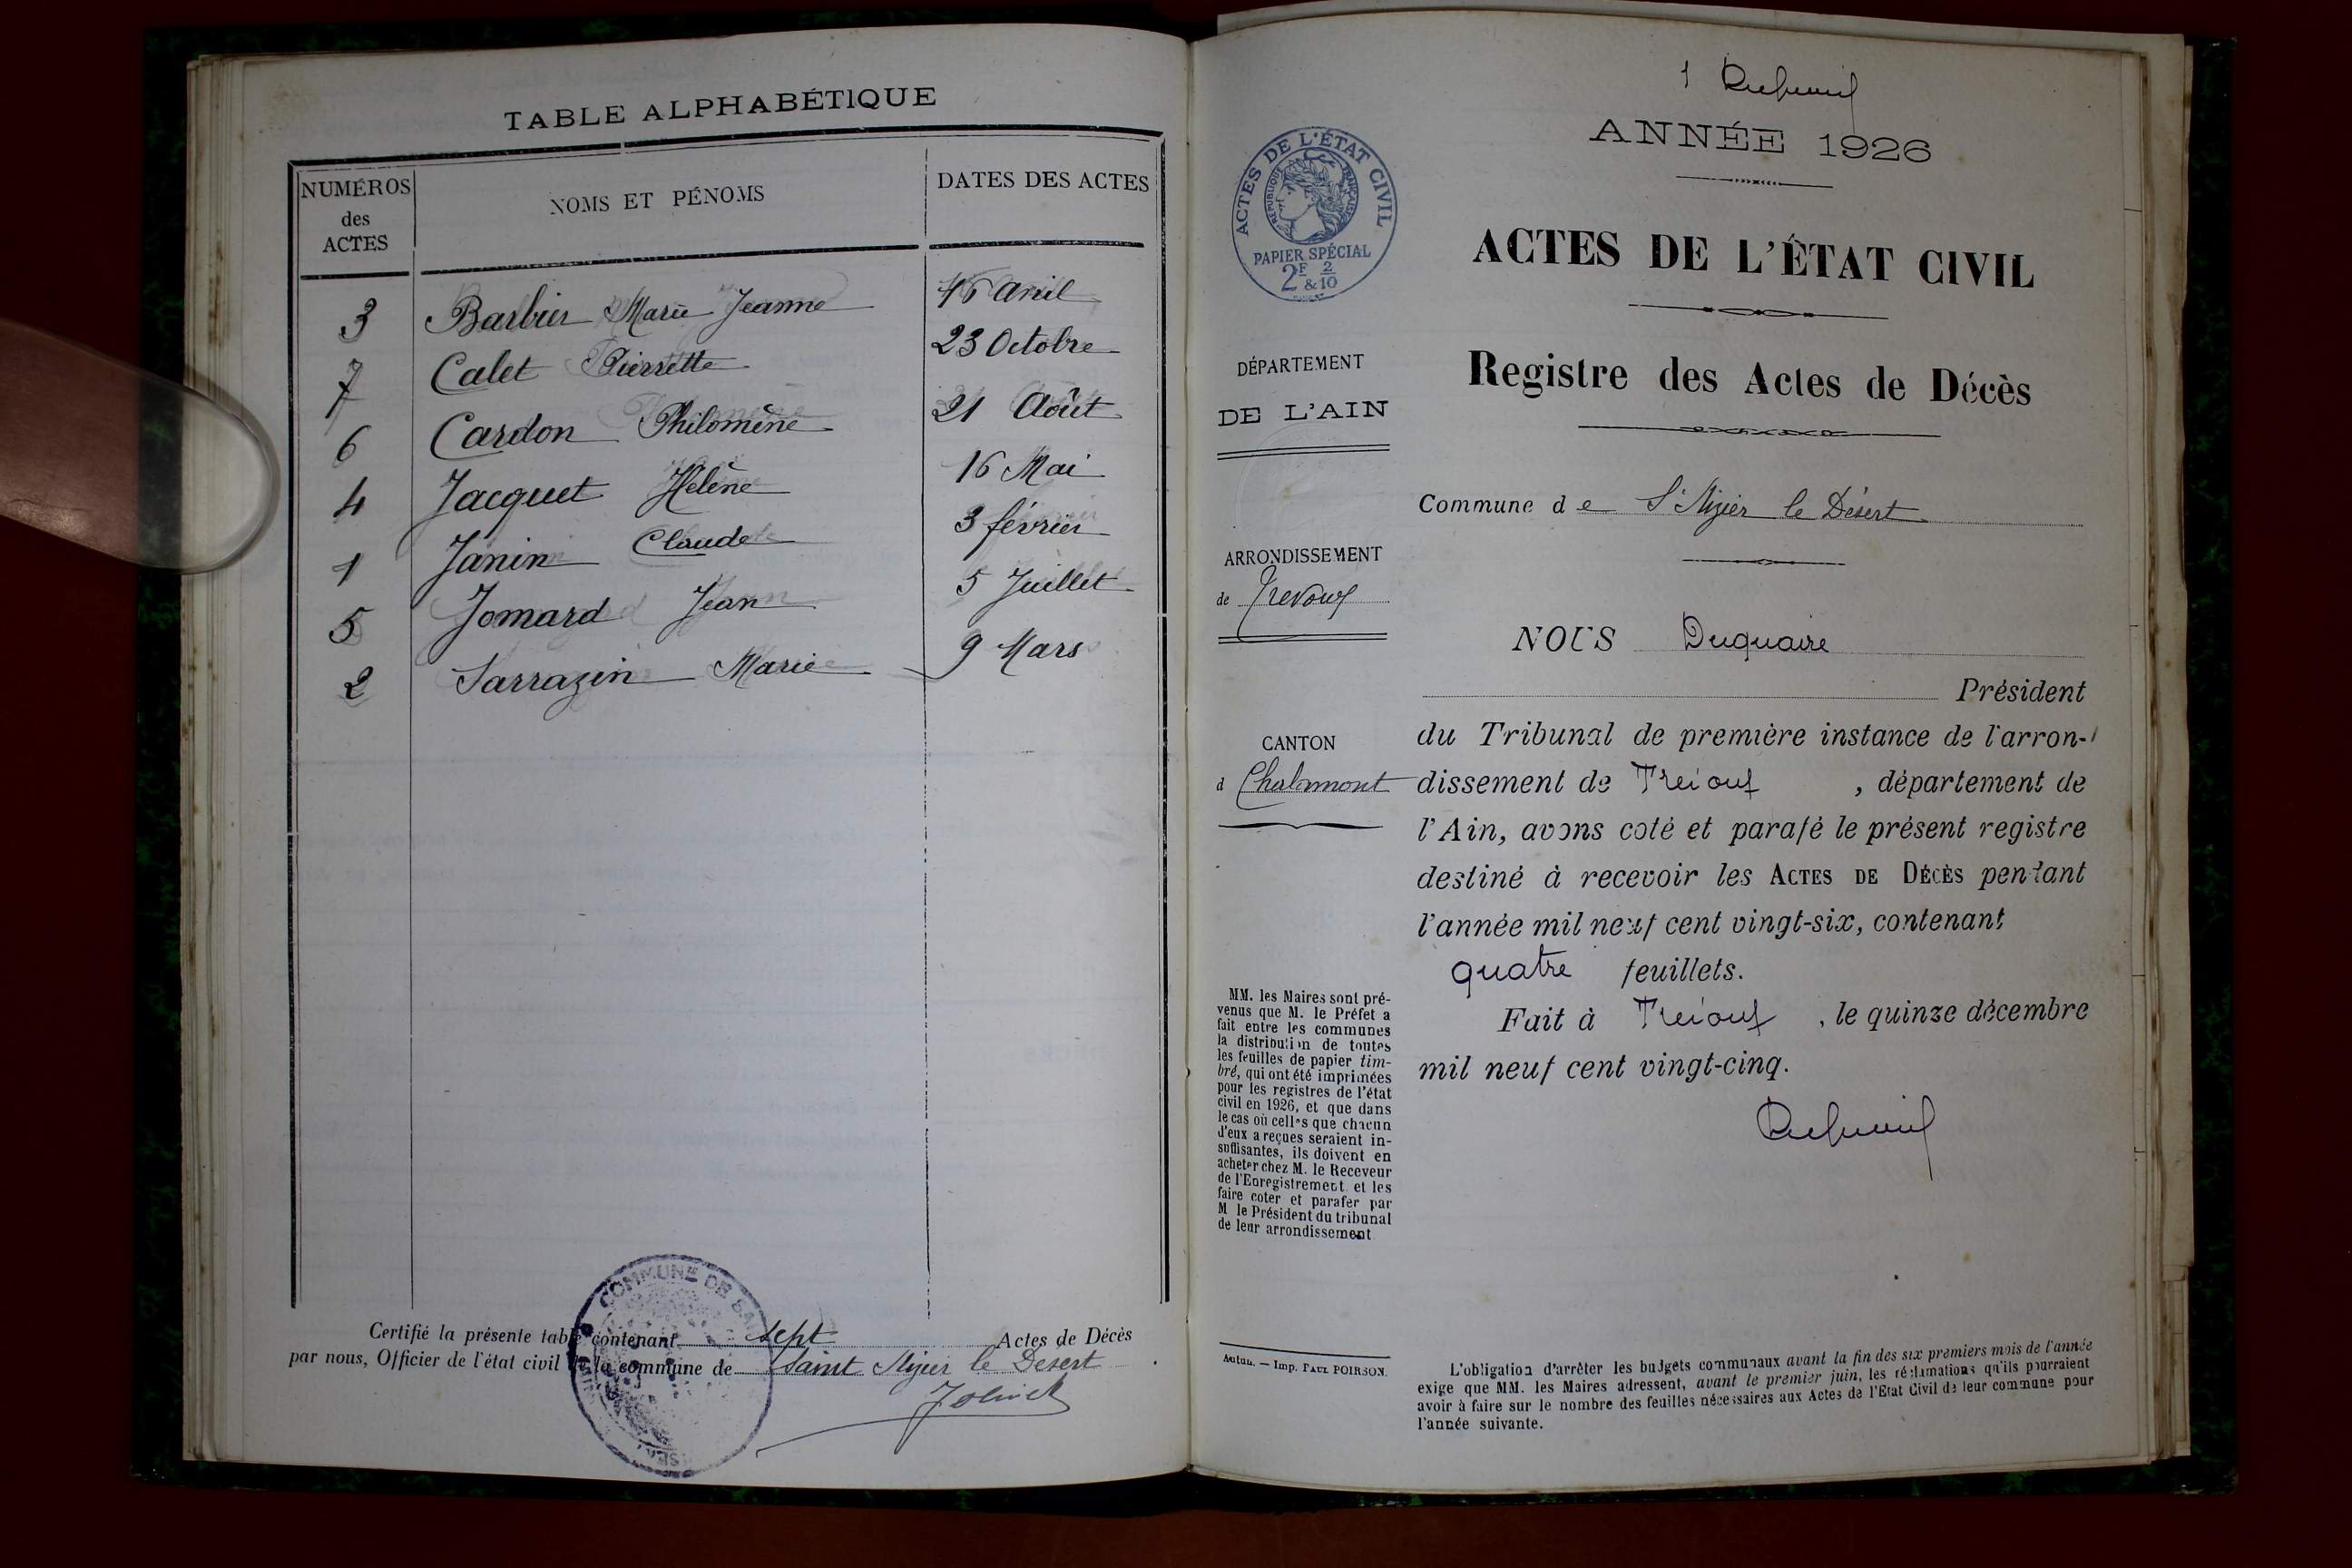 TABLE ALPHABÉTIQUE
NUMÉROS
des
ACTES
NOMS ET PÉNOMS
DATES DES ACTES
3 Barbier Marie Jeanne 16 avril
7 Calet Pierrette 23 Octobre
6 Cardon Philomène 21 Août
4 Jacquet Hélène 16 Mai
1 Janin Claude 3 février
5 Jomard Jean 5 Juillet
2 Sarrazin Marie 9 Mars
Certifié la présente table contenant sept Actes de Décès
par nous, Officier de l'état civil de la commune de Saint Nizier le Désert
COMMUNE DE
1
ANNÉE 1926
ACTES DE L'ÉTAT CIVIL
RÉPUBLIQUE FRANÇAISE
PAPIER SPÉCIAL
2F & 2/10
ACTES DE L'ÉTAT CIVIL
Registre des Actes de Décès
DÉPARTEMENT
DE L'AIN
Commune de St Nizier le Désert
ARRONDISSEMENT
de Trévoux
NOUS Duquaire
Président
CANTON
d Chalamont
du Tribunal de première instance de l'arron-
dissement de Trévoux, département de
l'Ain, avons coté et parafé le présent registre
destiné à recevoir les ACTES DE DÉCÈS pendant
l'année mil neuf cent vingt-six, contenant
quatre feuillets.
Fait à Trévoux, le quinze décembre
mil neuf cent vingt-cinq.
MM. les Maires sont pré-
venus que M. le Préfet a
fait entre les communes
la distribution de toutes
les feuilles de papier tim-
bré, qui ont été imprimées
pour les registres de l'état
civil en 1926, et que dans
le cas où celles que chacun
d'eux a reçues seraient in-
suffisantes, ils doivent en
acheter chez M. le Receveur
de l'Enregistrement et les
faire coter et parafer par
M le Président du tribunal
de leur arrondissement
Autun. — Imp. PAUL POIRSON.
L'obligation d'arrêter les budgets communaux avant la fin des six premiers mois de l'année
exige que MM. les Maires adressent, avant le premier juin, les réclamations qu'ils pourraient
avoir à faire sur le nombre des feuilles nécessaires aux Actes de l'Etat Civil de leur commune pour
l'année suivante.